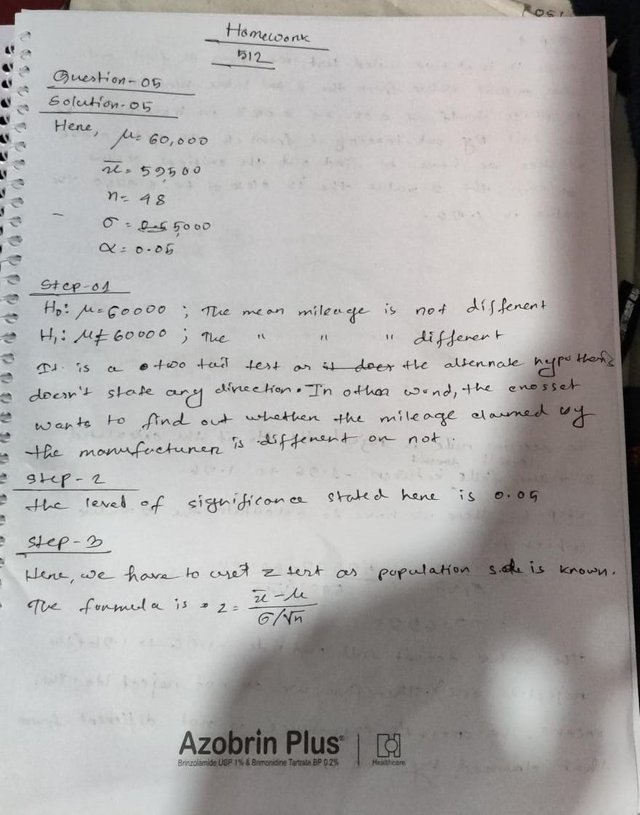 Homework
512
Question-05
Solution-05
Here, μ = 60,000
x̄ = 59,500
n = 48
σ = 5000
α = 0.05
Step-01
H₀: μ = 60000 ; The mean mileage is not different
H₁: μ ≠ 60000 ; The " " " different
It is a two tail test as the alternate hypothesis
doesn't state any direction. In other word, the
wants to find out whether the mileage claimed by
the manufacturer is different or not.
Step-2
The level of significance stated here is 0.05
Step-3
Here, we have to use z test as population s.d is known.
The formula is z = x̄ - μ / σ/√n
Azobrin Plus®
Brinzolamide USP 1% & Brimonidine Tartrate BP 0.2%
Healthcare